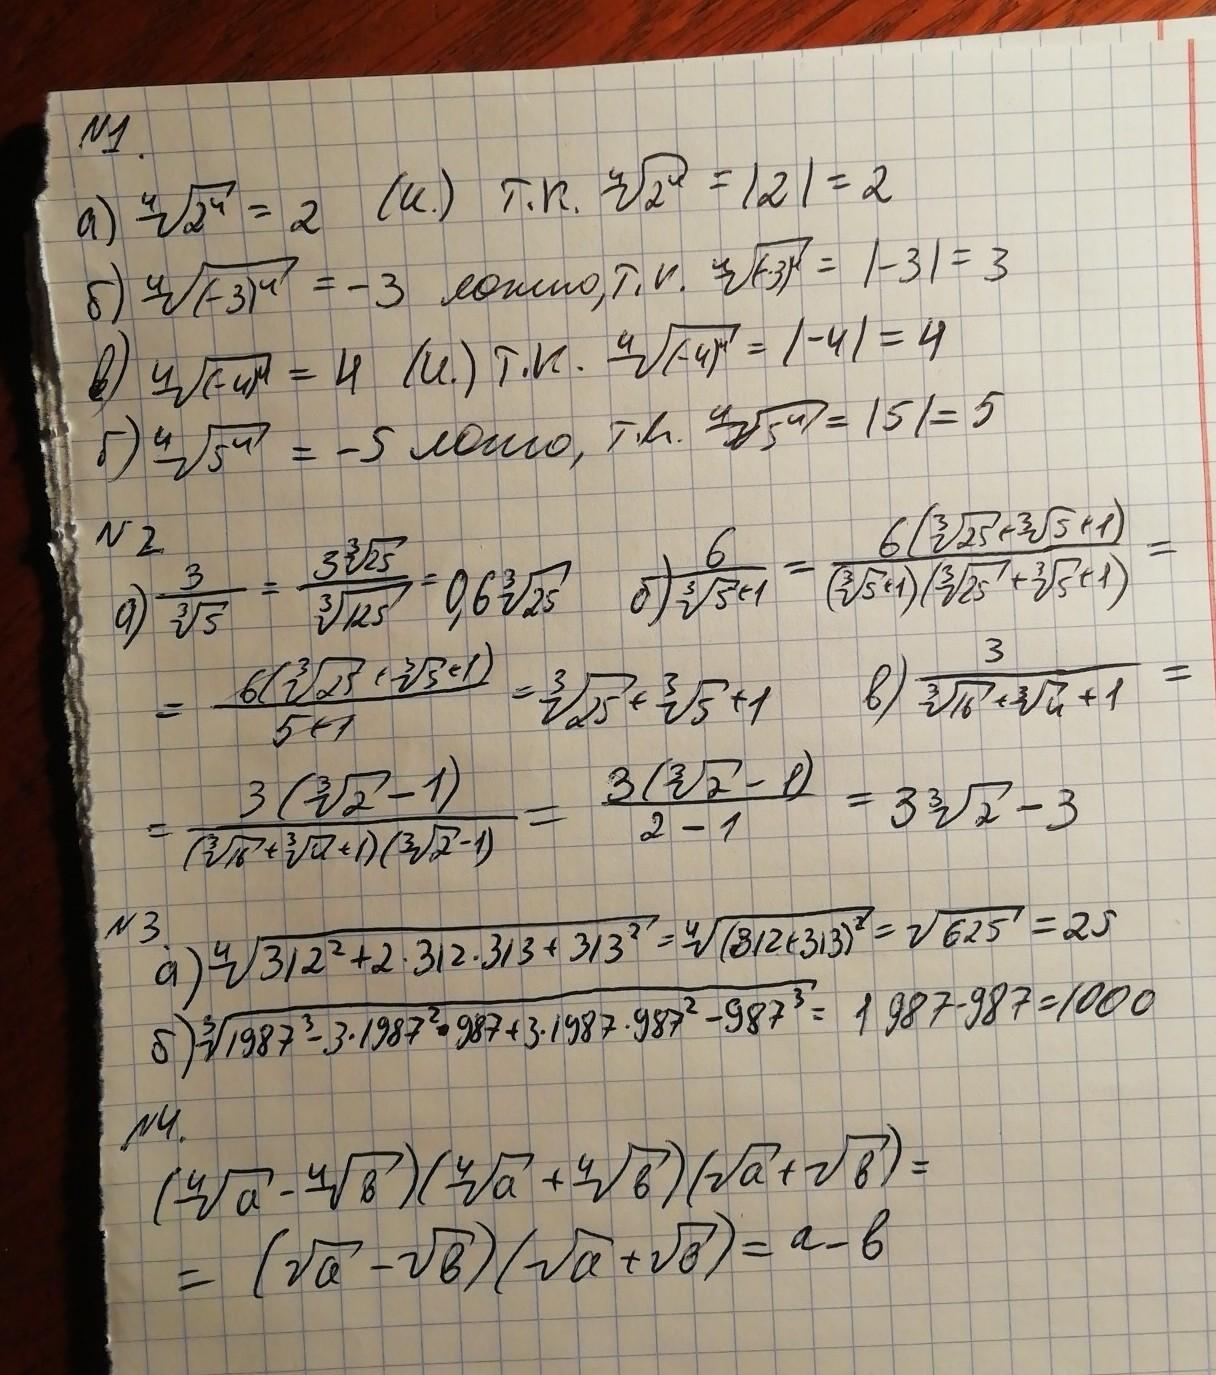 №1.
а) ∜(2⁴) = 2 (и.) т.к. ∜(2⁴) = |2| = 2
б) ∜((-3)⁴) = -3 ложно, т.к. ∜((-3)⁴) = |-3| = 3
в) ∜((-4)⁴) = 4 (и.) т.к. ∜((-4)⁴) = |-4| = 4
б) ∜(5⁴) = -5 ложно, т.к. ∜(5⁴) = |5| = 5
№2
а) 3/∛5 = 3∛25/∛125 = 0,6∛25 б) 6/(∛5+1) = 6(∛25+∛5+1)/((∛5+1)(∛25+∛5+1)) =
= 6(∛25+∛5+1)/(5+1) = ∛25+∛5+1 в) 3/(∛16+∛4+1) =
= 3(∛2-1)/((∛16+∛4+1)(∛2-1)) = 3(∛2-1)/(2-1) = 3∛2-3
№3.
а) ∜(312²+2·312·313+313²) = ∜((312+313)²) = √625 = 25
б) ∛(1987³-3·1987²·987+3·1987·987²-987³) = 1987-987=1000
№4.
(∜a-∜в)(∜a+∜в)(√a+√в)=
= (√a-√в)(√a+√в)=a-в